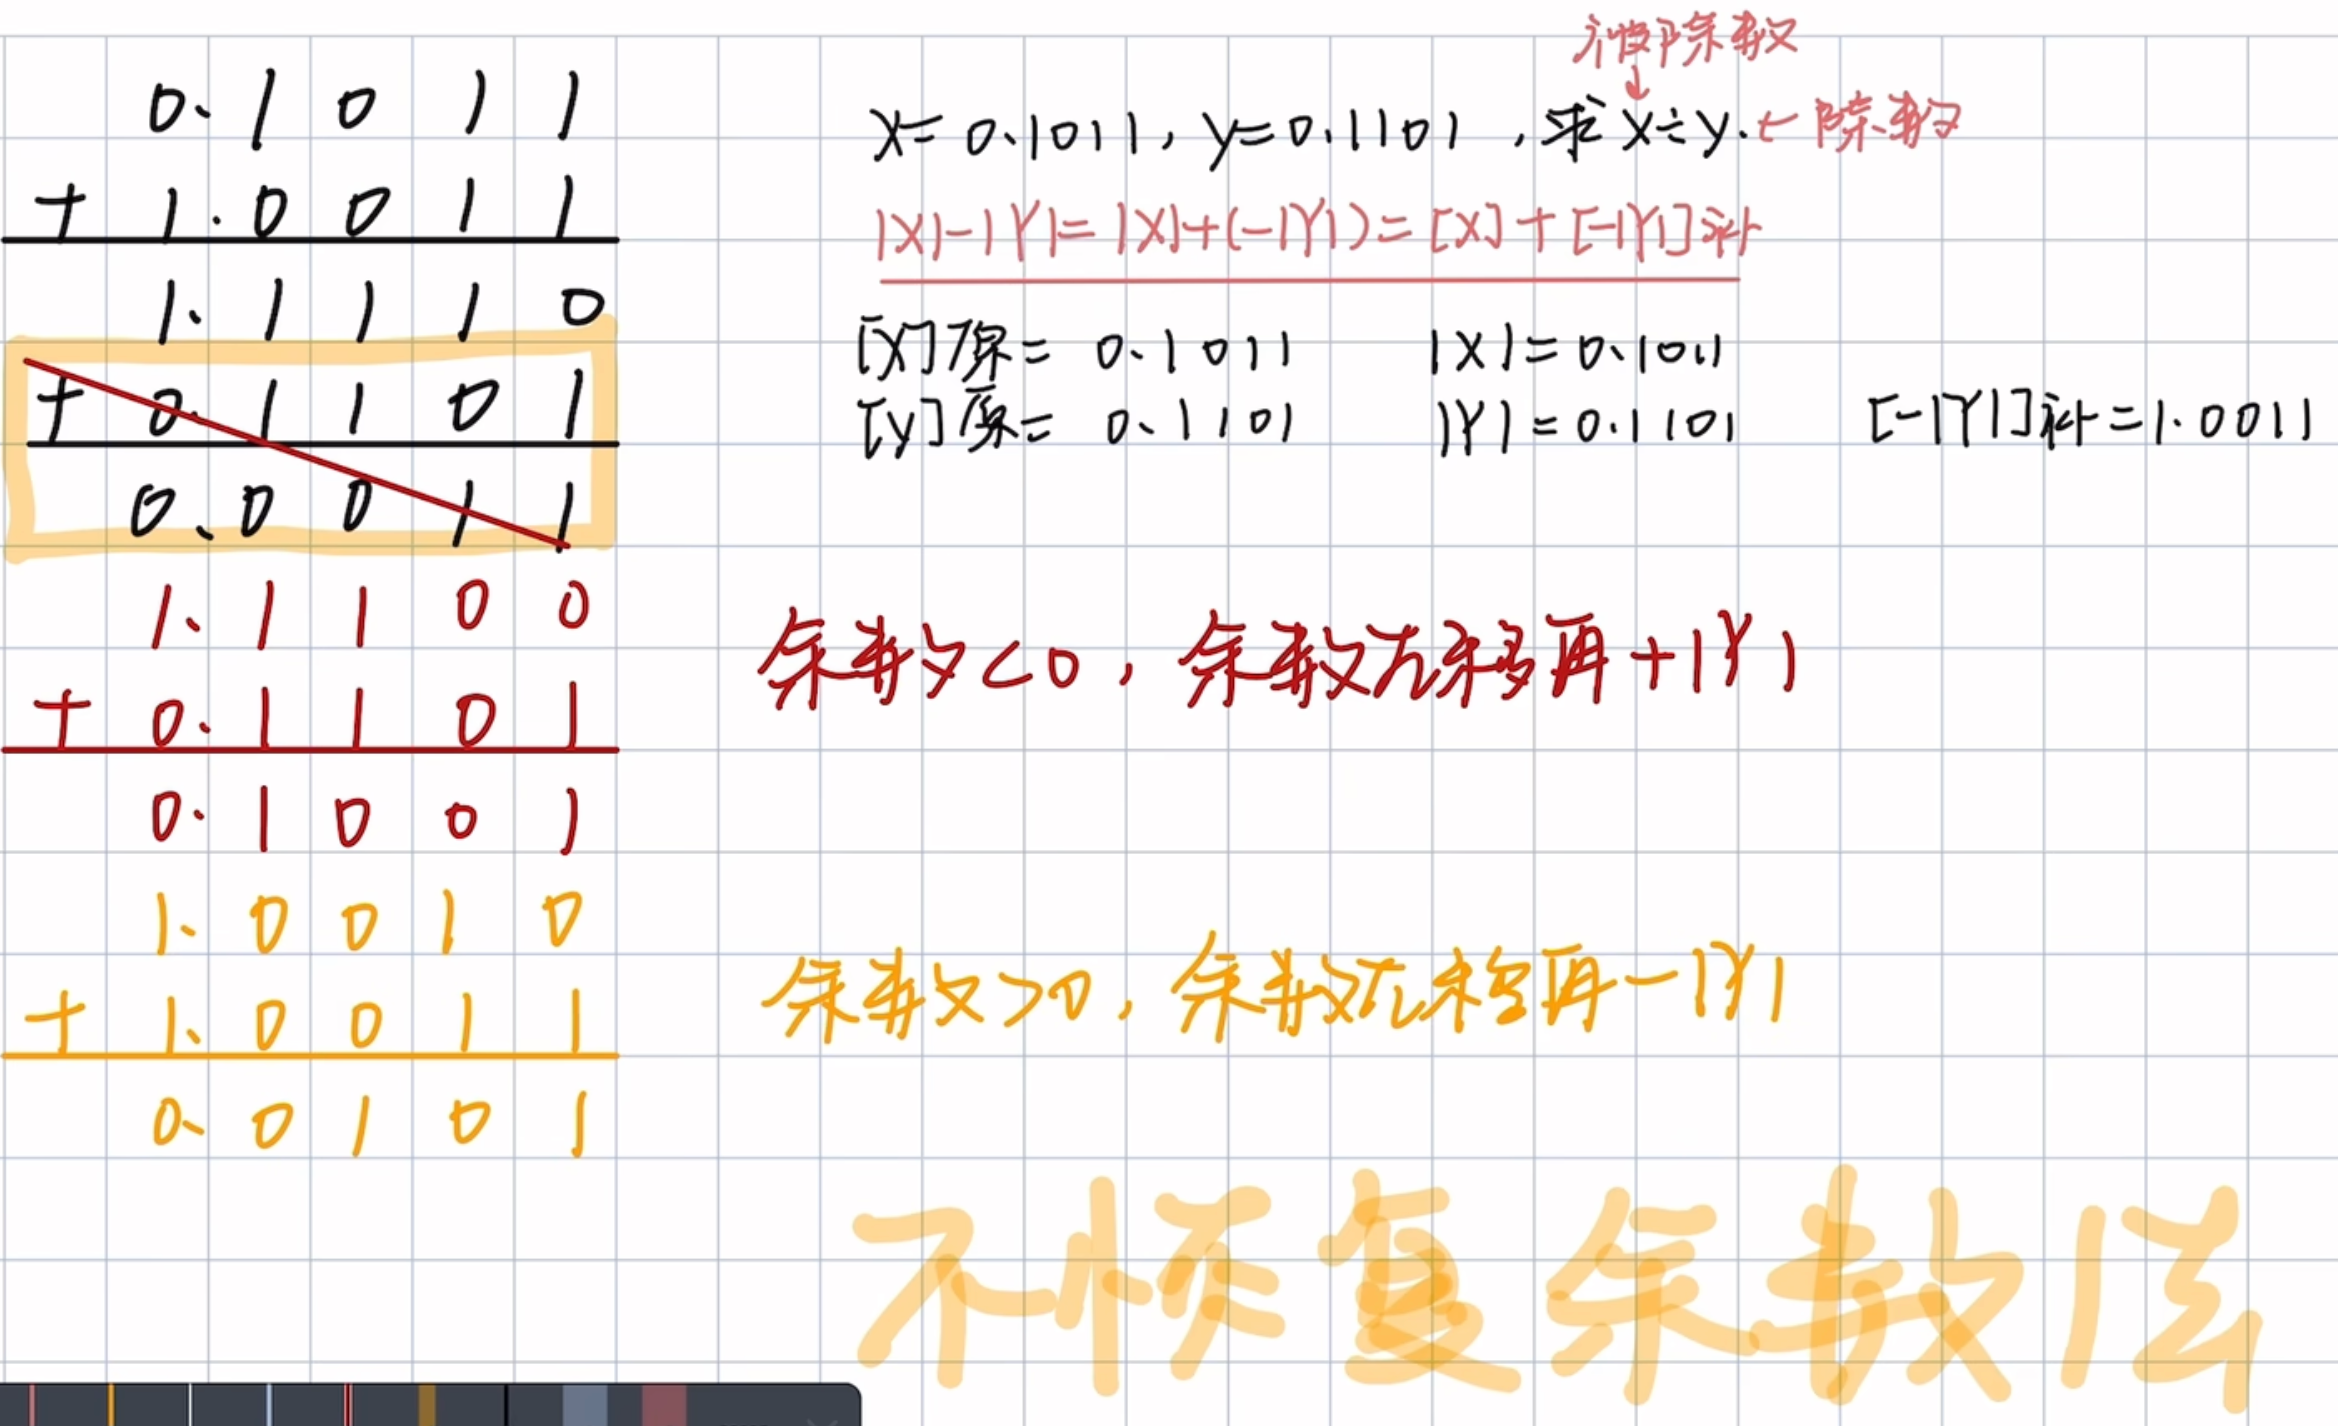 0.1011
+1.0011
1.1110
+0.1101
0.0011
1.1100
+0.1101
0.1001
1.0010
+1.0011
0.0101
被除数
X=0.1011, y=0.1101, 求X÷y. ←除数
|X|-|Y|=|X|+(-|Y|)=[X]+[-|Y|]补
[X]原=0.1011 |X|=0.1011
[y]原=0.1101 |Y|=0.1101 [-|Y|]补=1.0011
余数<0, 余数左移再+|Y|
余数>0, 余数左移再-|Y|
不恢复余数法